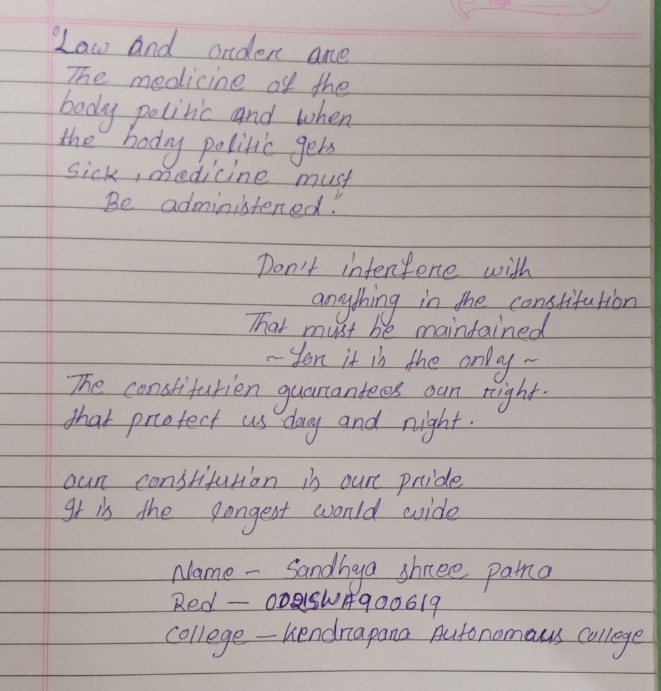 "Law and order are
The medicine of the
body politic and when
the body politic gets
sick, medicine must
Be administered."
Don't interfere with
anything in the constitution
That must be maintained
~ for it is the only ~
The constitution guarantees our right.
that protect us day and night.
our constitution is our pride
It is the longest world wide
Name - Sandhya shree patra
Red - OD21SWA900619
College - Kendrapara Autonomous College